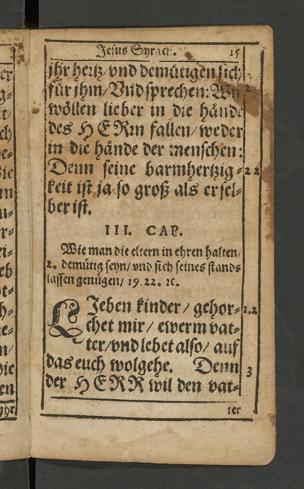 Jesus Syrach. 15
jhr hertz/ vnd demütigen sich
für jhm/ Vnd sprechen: Wir 2
wöllen lieber in die hände
des HERrn fallen/ weder
in die hände der menschen:
Denn seine barmhertzig- 22
keit ist ja so groß als er sel-
ber ist.
III. CAP.
Wie man die eltern in ehren halten/
2. demütig seyn/ vnd sich seines stands
lassen genügen/ 19. 22. ꝛc.
LIeben kinder/ gehor- 1.2
chet mir/ ewerm vat-
ter/ vnd lebet also/ auff
das euch wolgehe. Denn 3
der HERR wil den vat-
ter